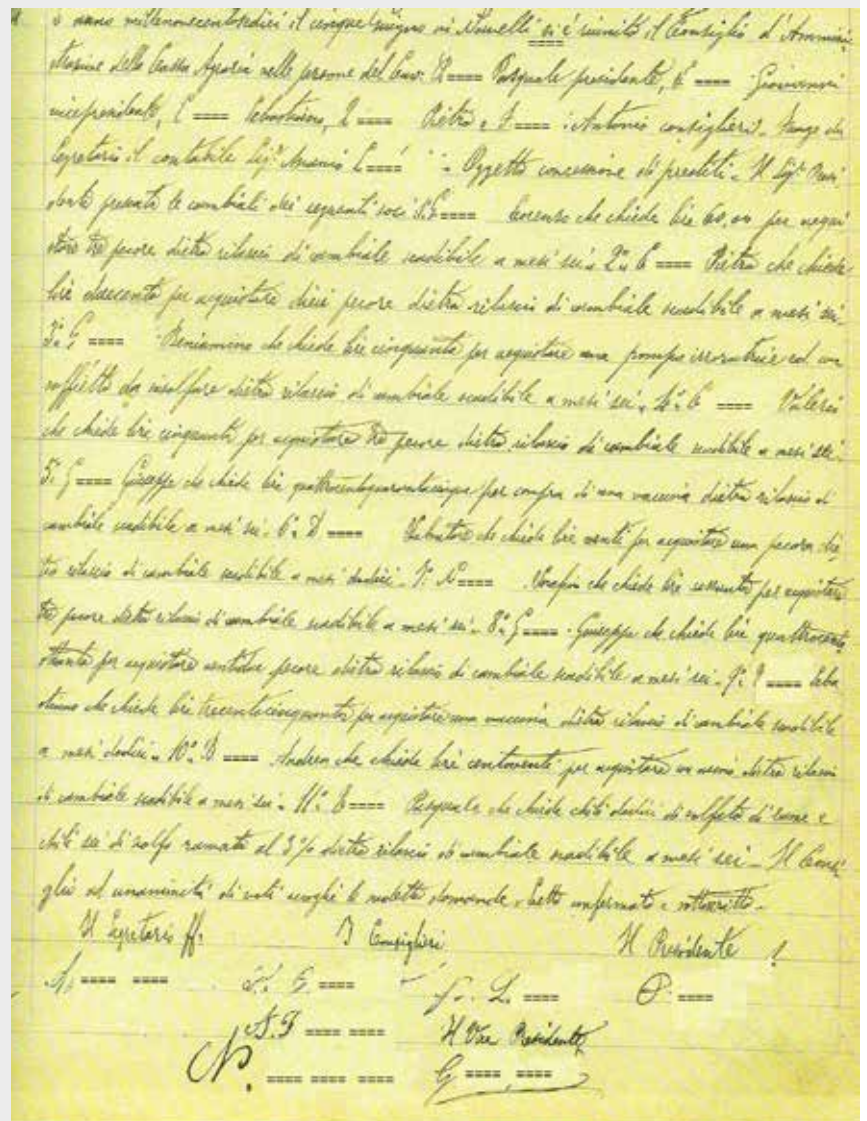 anno millenovecentosedici il cinque Giugno in Nurvelli si è riunito il Consiglio d'Ammini
strazione della Cassa Agraria nelle persone del Cav. R==== Pasquale presidente, C ==== Giovanni
vicepresidente, C ==== Sebastiano, R ==== Pietro e F==== Antonio consiglieri. Funge da
Segretario il contabile Sigr. L==== Oggetto concessione di prestiti. Il Sigr. Presi
dente presenta le cambiali dei seguenti soci E==== Lorenzo che chiede lire 60,00 per acqui
stare tre pecore dietro rilascio di cambiale scadibile a mesi sei. 2° C ==== Pietro che chiede
lire duecento per acquistare dieci pecore dietro rilascio di cambiale scadibile a mesi sei.
3° G ==== Beniamino che chiede lire cinquanta per acquistare una pompa irroratrice ed un
soffietto da insolfare dietro rilascio di cambiale scadibile a mesi sei. 4° C ==== Valerio
che chiede lire cinquanta per acquistare tre pecore dietro rilascio di cambiale scadibile a mesi sei.
5° G ==== Giuseppe che chiede lire quattrocentoquarantacinque per compra di una vaccina dietro rilascio di
cambiale scadibile a mesi sei. 6° D ==== Salvatore che chiede lire venti per acquistare una pecora die
tro rilascio di cambiale scadibile a mesi dodici. 7° N==== che chiede lire sessanta per acquistare
tre pecore dietro rilascio di cambiale scadibile a mesi sei. 8° G ==== Giuseppe che chiede lire quattrocento
ottanta per acquistare ventidue pecore dietro rilascio di cambiale scadibile a mesi sei. 9° P ==== Seba
stiano che chiede lire trecentocinquanta per acquistare una vaccina dietro rilascio di cambiale scadibile
a mesi dodici. 10° D ==== Andrea che chiede lire centoventi per acquistare un asino dietro rilascio
di cambiale scadibile a mesi sei. 11° ==== Pasquale che chiede chili dodici di solfato di rame e
chili sei di zolfo ramato al 3% dietro rilascio di cambiale scadibile a mesi sei. Il Consi
glio ad unanimità di voti accoglie le suddette domande. Letto confermato e sottoscritto.
Il Segretario ff. I Consiglieri Il Presidente
==== ==== ==== L. ==== P. ====
A. F ==== ==== Il Vice Presidente
N. ==== ==== ==== G ==== ====